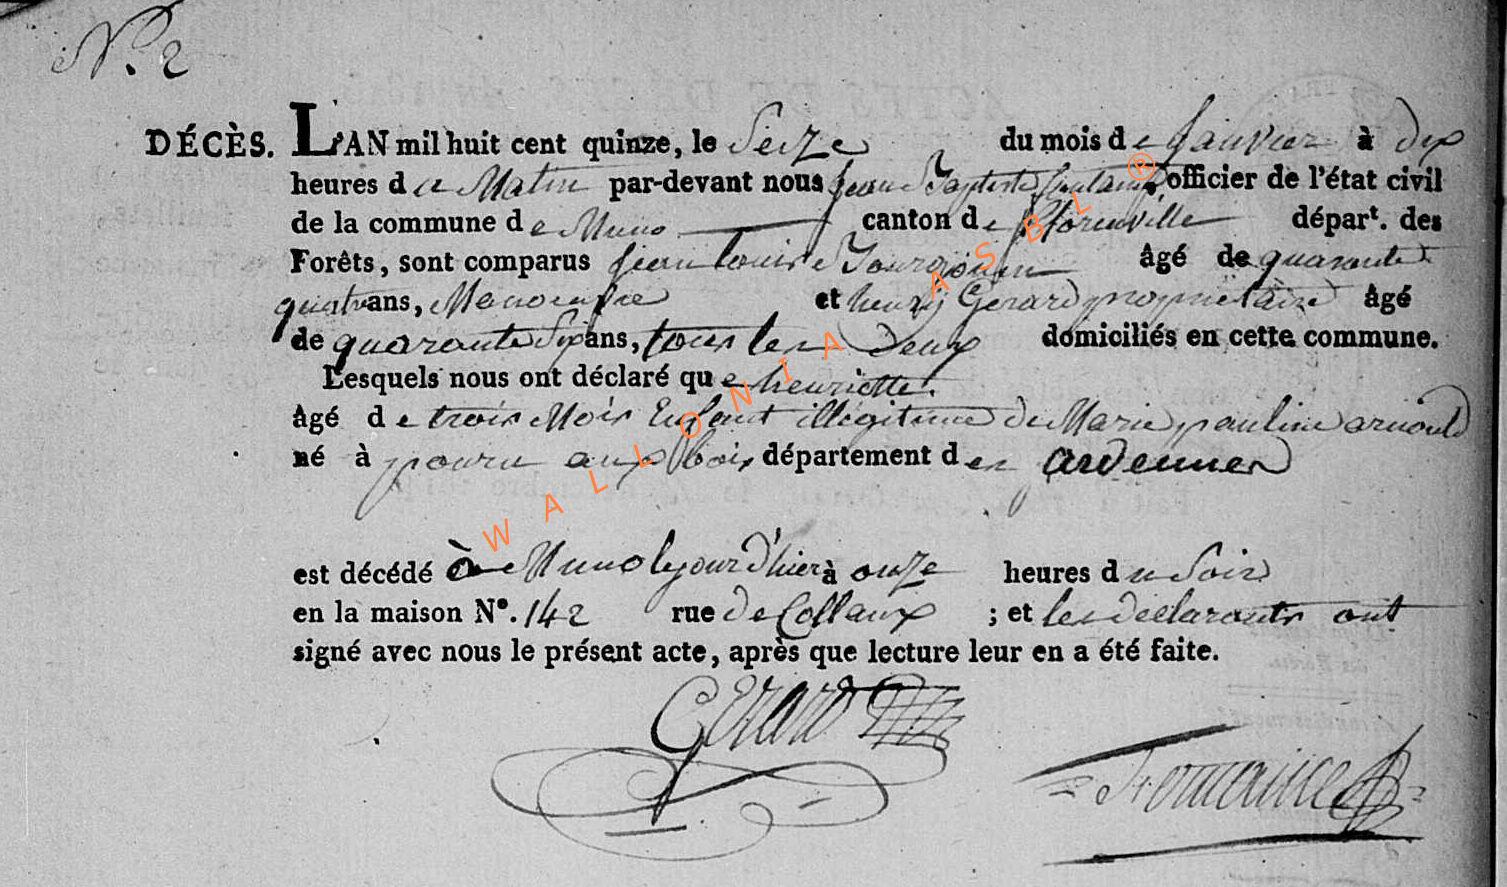 N.º 2
DÉCÈS. L'AN mil huit cent quinze, le Seize du mois de Janvier à dix
heures du Matin par-devant nous jean Baptiste officier de l'état civil
de la commune de Muno canton de florenville départ. des
Forêts, sont comparus jean louis âgé de quarante
quatre ans, Manoeuvre et henry Gerard propriétaire âgé
de quarante Six ans, tous les deux domiciliés en cette commune.
Lesquels nous ont déclaré que henriette.
âgé de trois Mois Enfant illégitime de Marie pauline arnould
né à pouru aux bois département des ardennes
est décédé à Muno le jour d'hier à onze heures du Soir
en la maison Nº. 142 rue de Collaux ; et les declarants ont
signé avec nous le présent acte, après que lecture leur en a été faite.
Gerard
WALLONIA ASBL ®